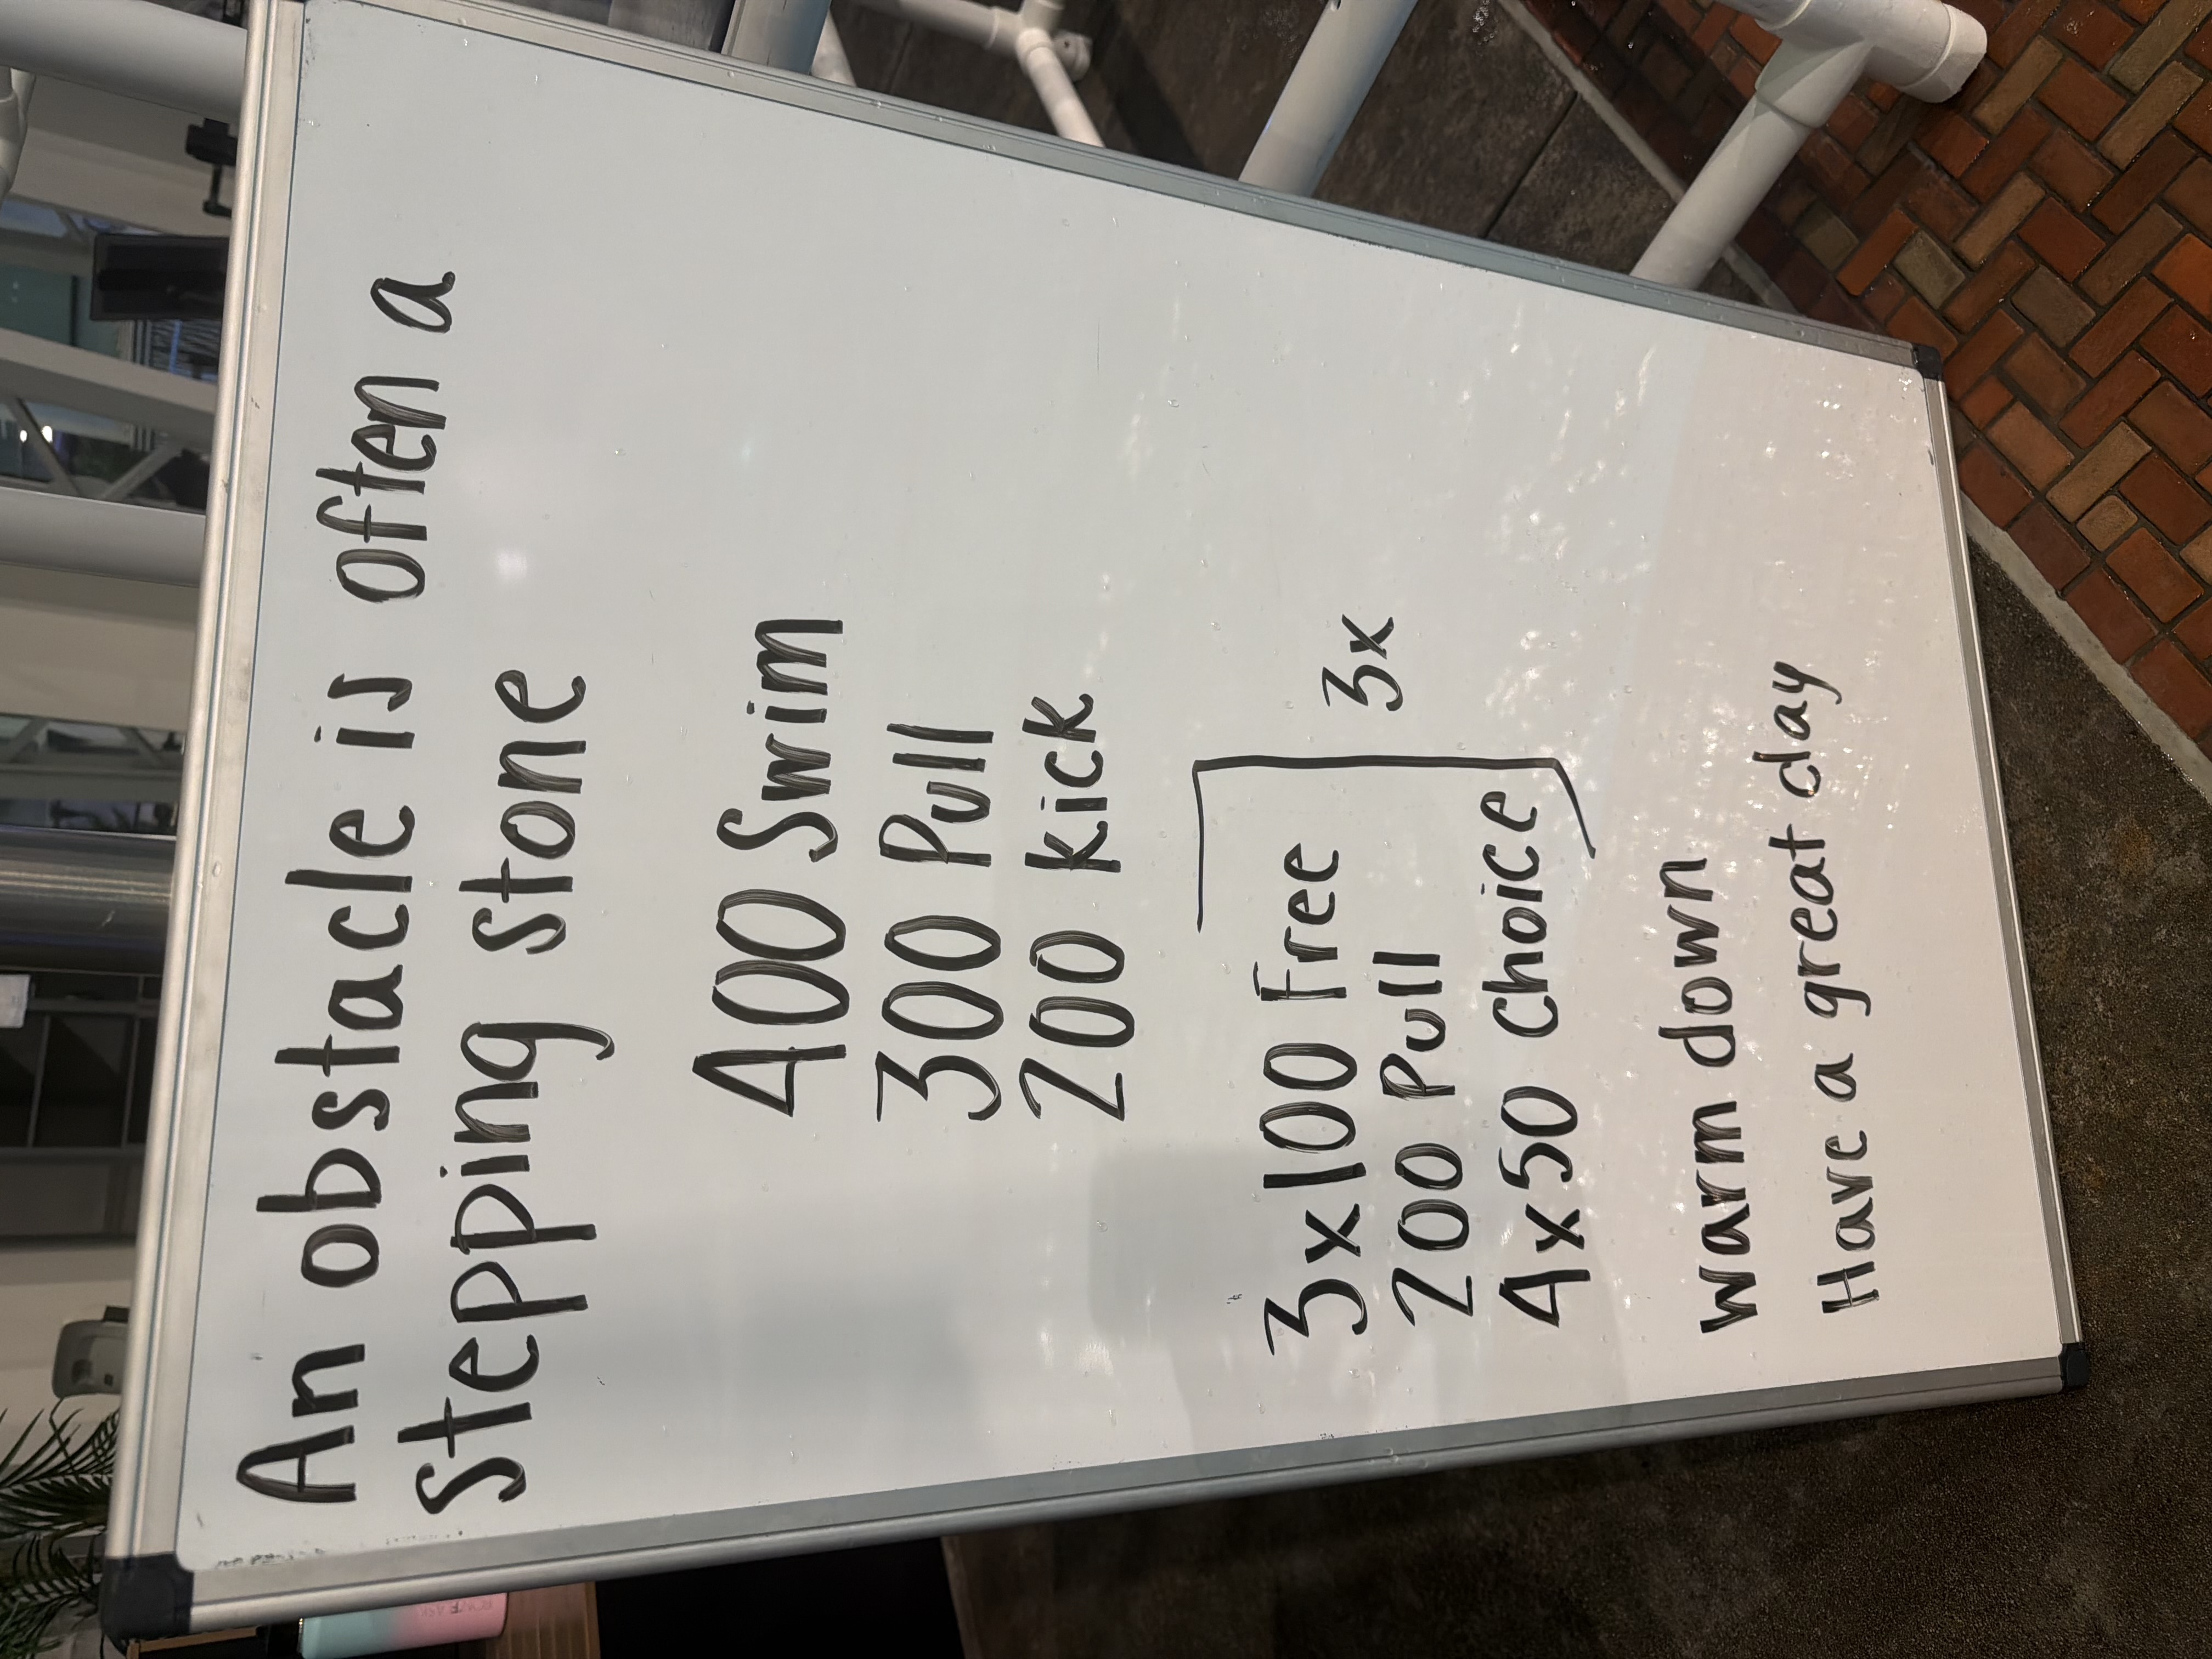 An obstacle is often a
stepping stone
400 Swim
300 Pull
200 kick
3x100 Free
200 Pull
3x
4x50 choice
warm down
Have a great day